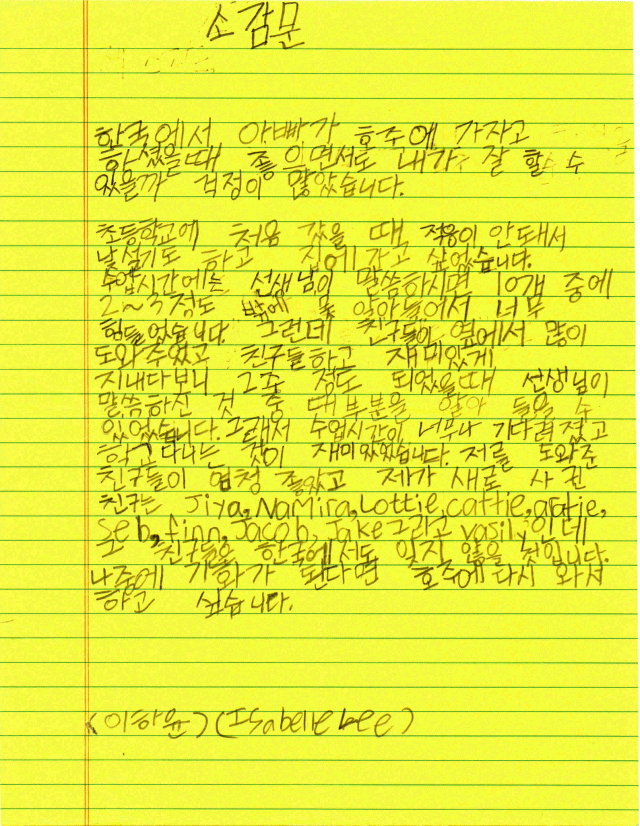 소감문
한국에서 아빠가 호주에 가자고
하셨을때 좋으면서도 내가 잘 할 수
있을까 걱정이 많았습니다.
초등학교에 처음 갔을 때 적응이 안돼서
낯설기도 하고 집에 가고 싶었습니다.
수업시간에는 선생님이 말씀하시면 10개 중에
2~3정도 밖에 못 알아들어서 너무
힘들었습니다. 그런데 친구들이 옆에서 많이
도와주었고 친구들하고 재미있게
지내다보니 2주 정도 되었을때 선생님이
말씀하신 것 중 대부분을 알아 들을 수
있었습니다. 그래서 수업시간이 너무나 기다려졌고
학교다니는 것이 재미있었습니다. 저를 도와준
친구들이 엄청 좋았고 제가 새로 사귄
친구는 Jiya, Namira, Lottie, cattie,
Seb, finn, Jacob, Jake 그리고 vasily 인데
그 친구들을 한국에서도 잊지 않을 것입니다.
나중에 기회가 된다면 호주에 다시 와서
하고 싶습니다.
(이하윤) (Isabelle Lee)